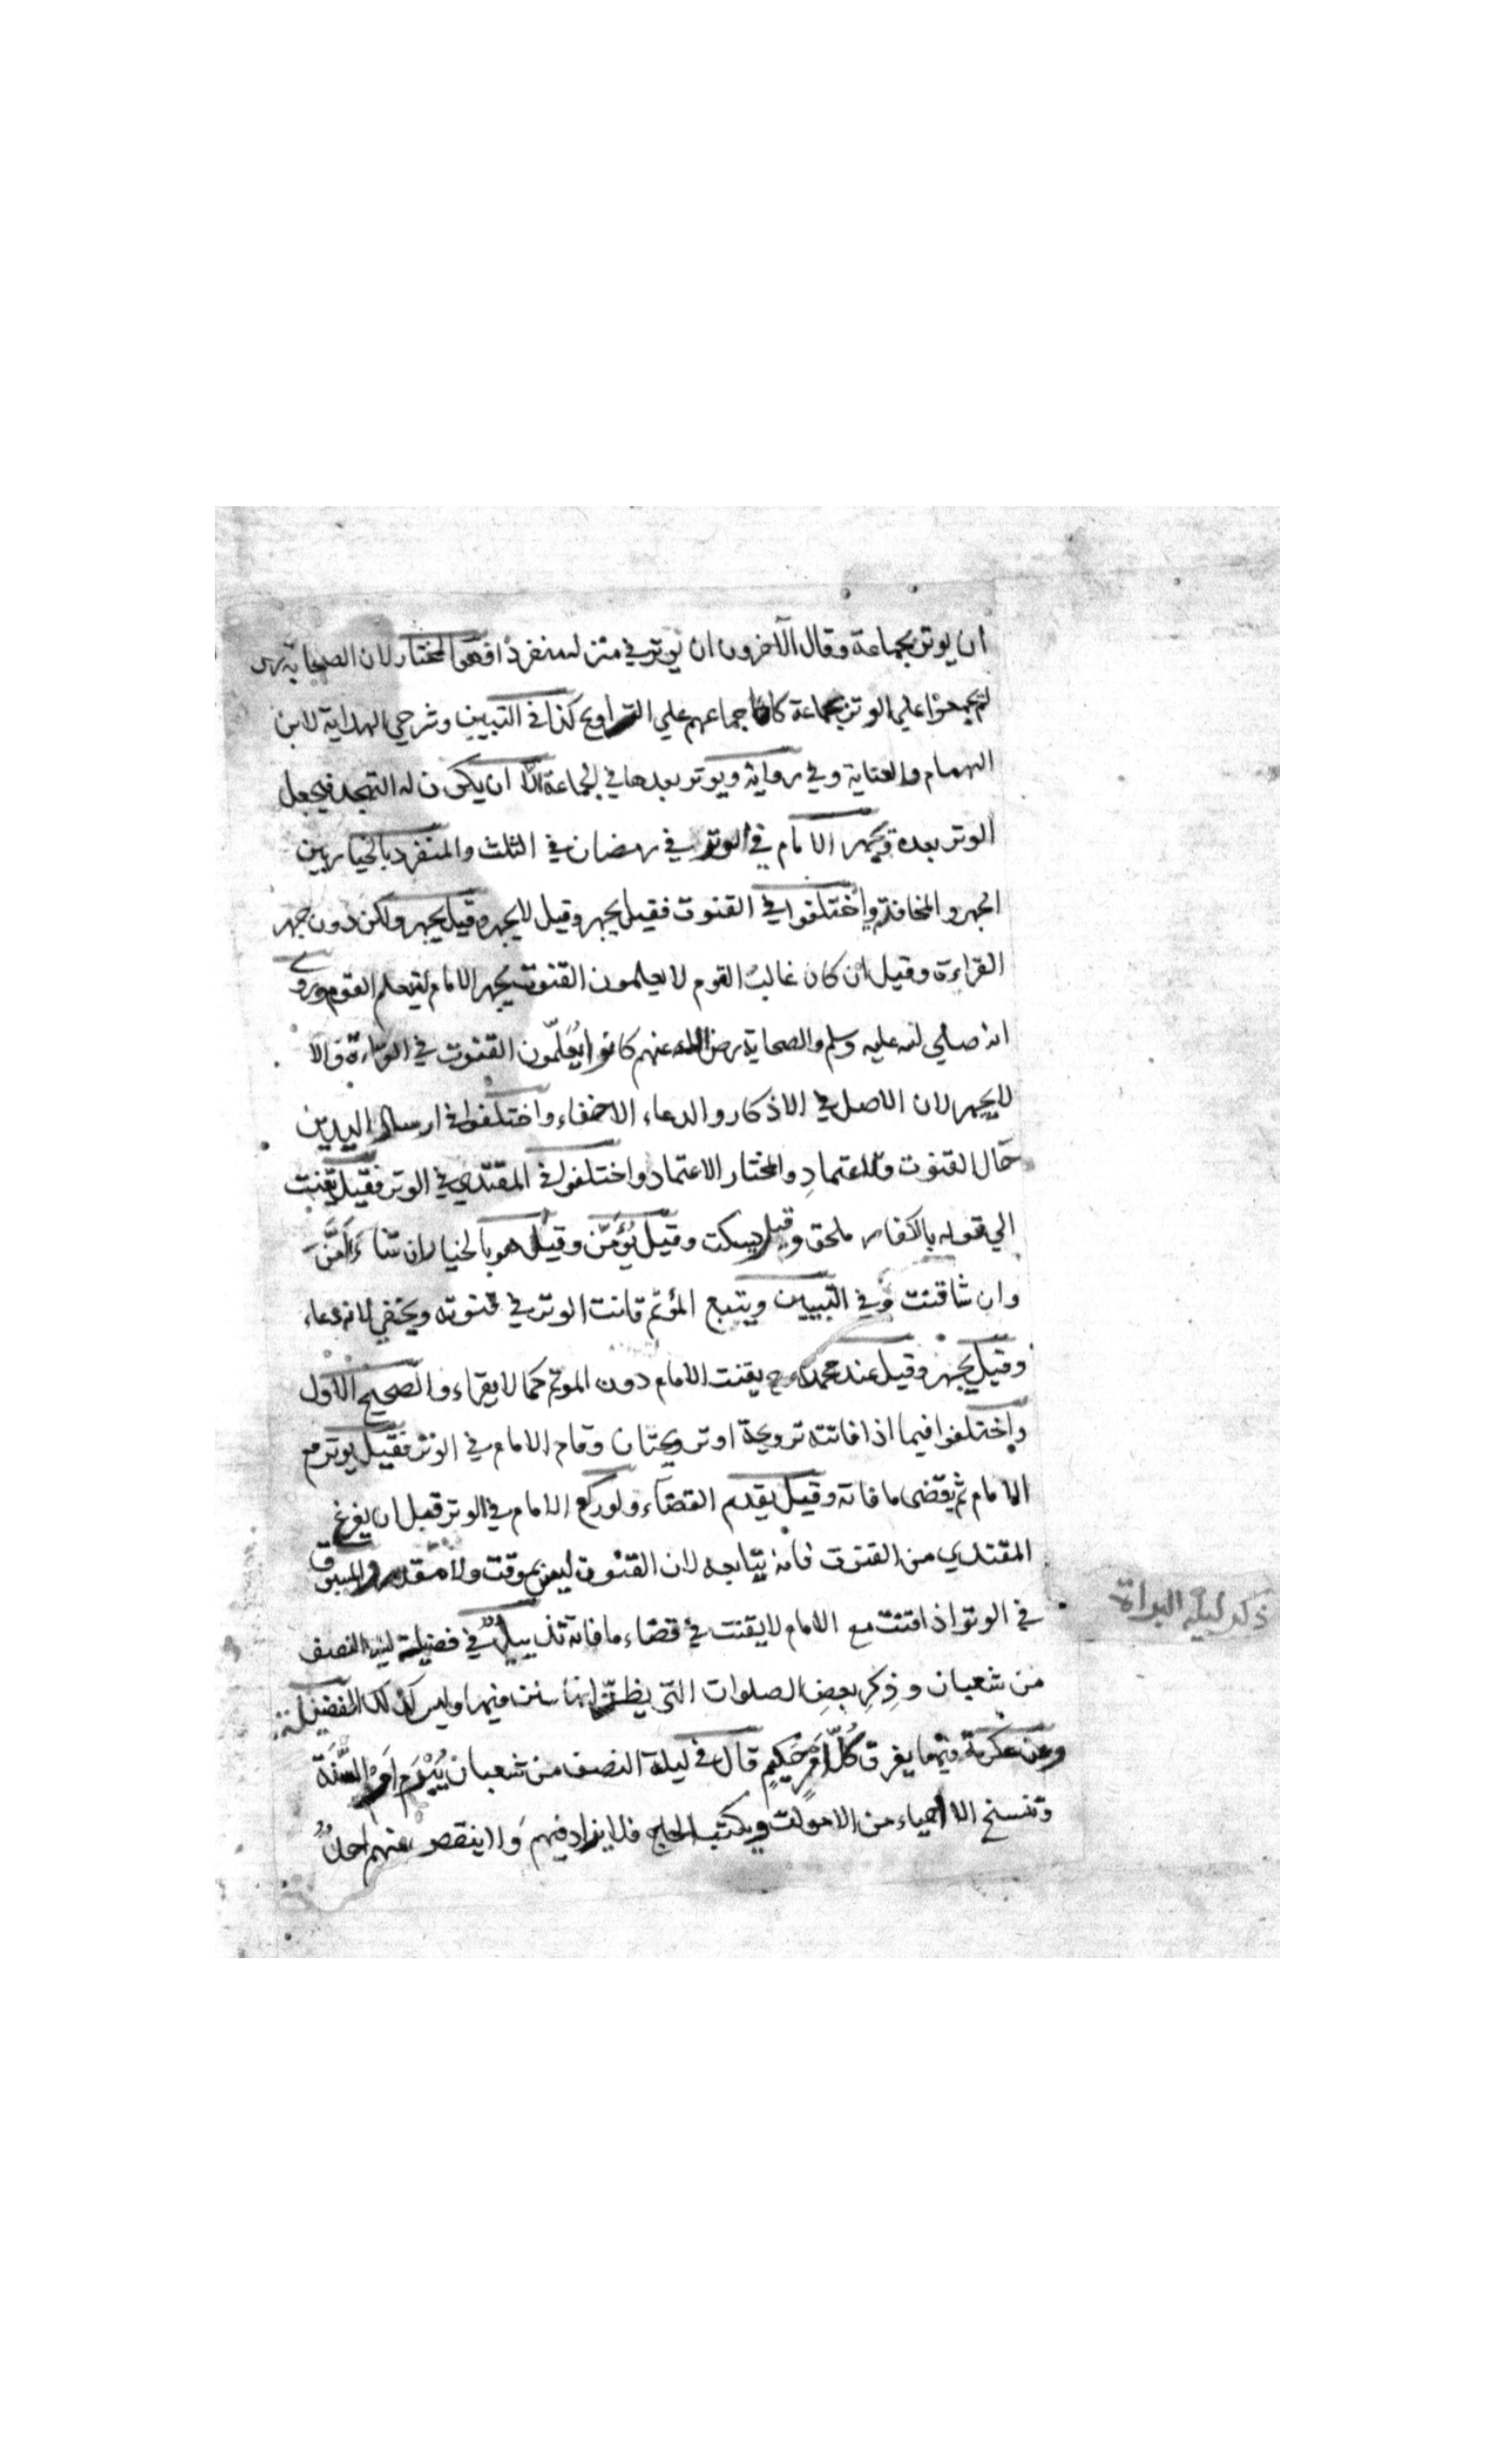 ان يوتر بجماعة وقال الآخرون ان يوتر في منزله منفردا وهو المختار لان الصحابة رض
لم يجمعوا علي الوتر بجماعة كاجماعهم علي التراويح كذا في التبيين وشرحي الهداية لابن
الهمام والعناية وفي رواية ويوتر بعدها في الجماعة الا ان يكون له التهجد فيجعل
الوتر بعده ويجهر الامام في الوتر في رمضان في الثلث والمنفرد بالخيار بين
الجهر والمخافتة واختلفوا في القنوت فقيل يجهر وقيل لا يجهر وقيل يجهر ولكن دون جهر
القراءة وقيل ان كان غالب القوم لا يعلمون القنوت يجهر الامام ليتعلم القوم وروي
انه صلي الله عليه وسلم والصحابة رضي الله عنهم كانوا يعلّمون القنوت في القراءة والا
لا يجهر لان الاصل في الاذكار والدعاء الاخفاء واختلفوا في ارسال اليدين
حال القنوت والاعتماد والمختار الاعتماد واختلفوا في المقتدي في الوتر فقيل يقنت
الي قوله بالكفار ملحق وقيل يسكت وقيل يُؤَمّن وقيل هو بالخيار ان شاء اَمَّنَ
وان شا قنت وفي التبيين ويتبع المؤتم قانت الوتر في قنوته ويخفي لانه دعاء
وقيل يجهر وقيل عند محمد رح يقنت الامام دون الموتم كما لا يقراء والصحيح الاول
واختلفوا فيما اذا فاتته ترويحة او ترويحتان وقام الامام في الوتر فقيل يوتر مع
الامام ثم يقضى ما فاته وقيل يقدم القضاء ولو ركع الامام في الوتر قبل ان يفرغ
المقتدي من القنوت فانه يتابعه لان القنوت ليس بموقت ولا مقدر والمسبوق
في الوتر اذا قنت مع الامام لا يقنت في قضاء ما فاته تذييل في فضيلة ليلة النصف
من شعبان وذِكرِ بعضِ الصلوات التى يظنّ انها سنت فيها وليس كذلك الفضيلة
وعن عكرمة فيها يفرق كُلّ اَمْرٍ حَكِيمٍ قال في ليلة النصف من شعبان يُبْرَم اَمْر السَّنَة
وتنسخ الاحياء من الاموات ويكتب الحاج فلا يزاد فيهم وَلا ينقص منهم احدٌ
ذكر ليلة البراة